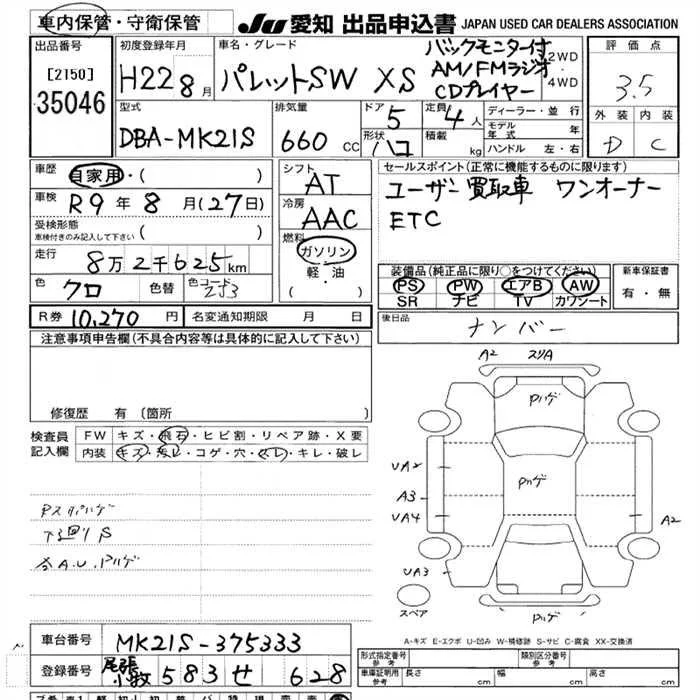 車内保管・守衛保管
JU 愛知 出品申込書 JAPAN USED CAR DEALERS ASSOCIATION
出品番号
[2150]
35046
初度登録年月
H22 8月
車名・グレード
パレットSW XS
バックモニター付
AM/FMラジオ
CDプレイヤー
2WD
・
4WD
評価点
3.5
外装 内装
D C
型式
DBA-MK21S
排気量
660 CC
ドア
5
形状
ハコ
定員
4人
積載
kg
ディーラー・並行
モデル年式 年
ハンドル 左・右
車歴
自家用・( )
車検
R9年8月(27日)
受検形態
車検付きのみ記入して下さい ( )
走行
8万2千625km
色
クロ
色替
色コード
ZJ3
シフト
AT
冷房
AAC
燃料
ガソリン
・
軽・油
・( )
セールスポイント(正常に機能するものに限ります)
ユーザー買取車 ワンオーナー
ETC
装備品(純正品に限り○をつけてください)
PS PW エアB AW
SR ナビ TV カワシート
新車保証書
有・無
R券 10,270円
名変通知期限 月 日
後日品
ナンバー
注意事項申告欄(不具合内容等は具体的に記入して下さい)
修復歴 有(箇所 )
検査員
記入欄
FW キズ・飛石・ヒビ割・リペア跡・X要
内装 キズ・汚レ・コゲ・穴・スレ・キレ・破レ
下廻りS
各A.U.Pハゲ
A2 スリA
Pハゲ
UA2
Pハゲ
A3
UA4
A2
UA3
Pハゲ
スペア
A-キズ E-エクボ U-凹み W-補修跡 S-サビ C-腐食 XX-交換済
車台番号
MK21S-375333
登録番号
尾張小牧 583 せ 628
形式指定番号
参考
類別区分番号
参考
車庫証明用
参考
長さ cm
幅 cm
高さ cm